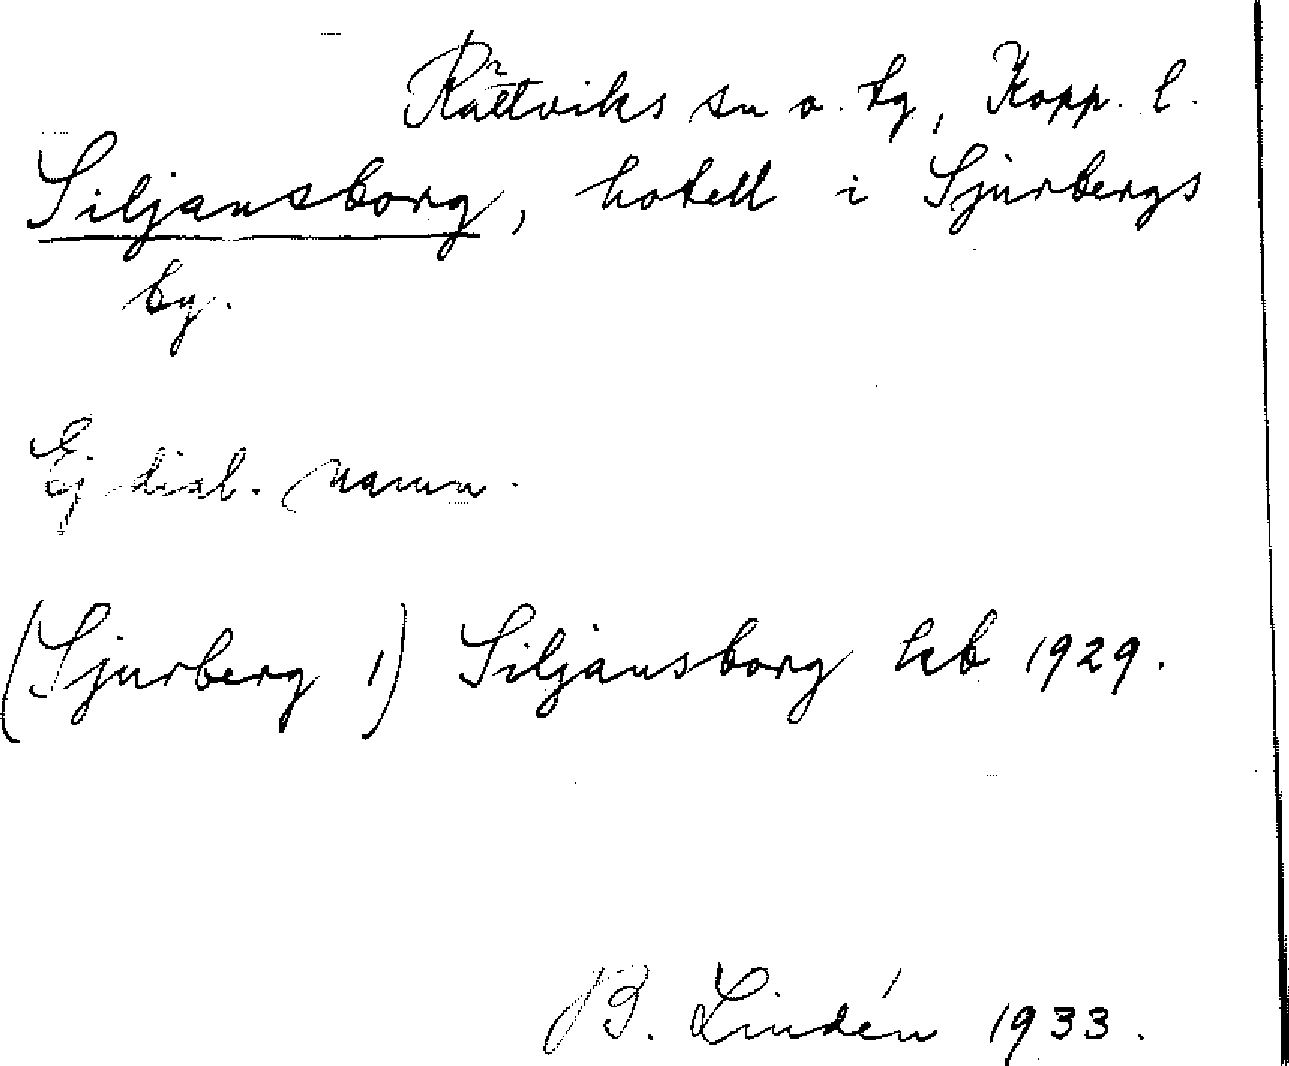 Rättviks sn o. tg, Kopp. l.
Siljansborg, hotell i Sjurbergs
by.
Ej dial. namn.
(Sjurberg 1) Siljansborg hb 1929.
B. Lindén 1933.